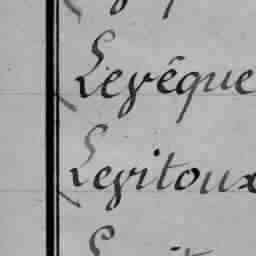 Levêque
Levitoux